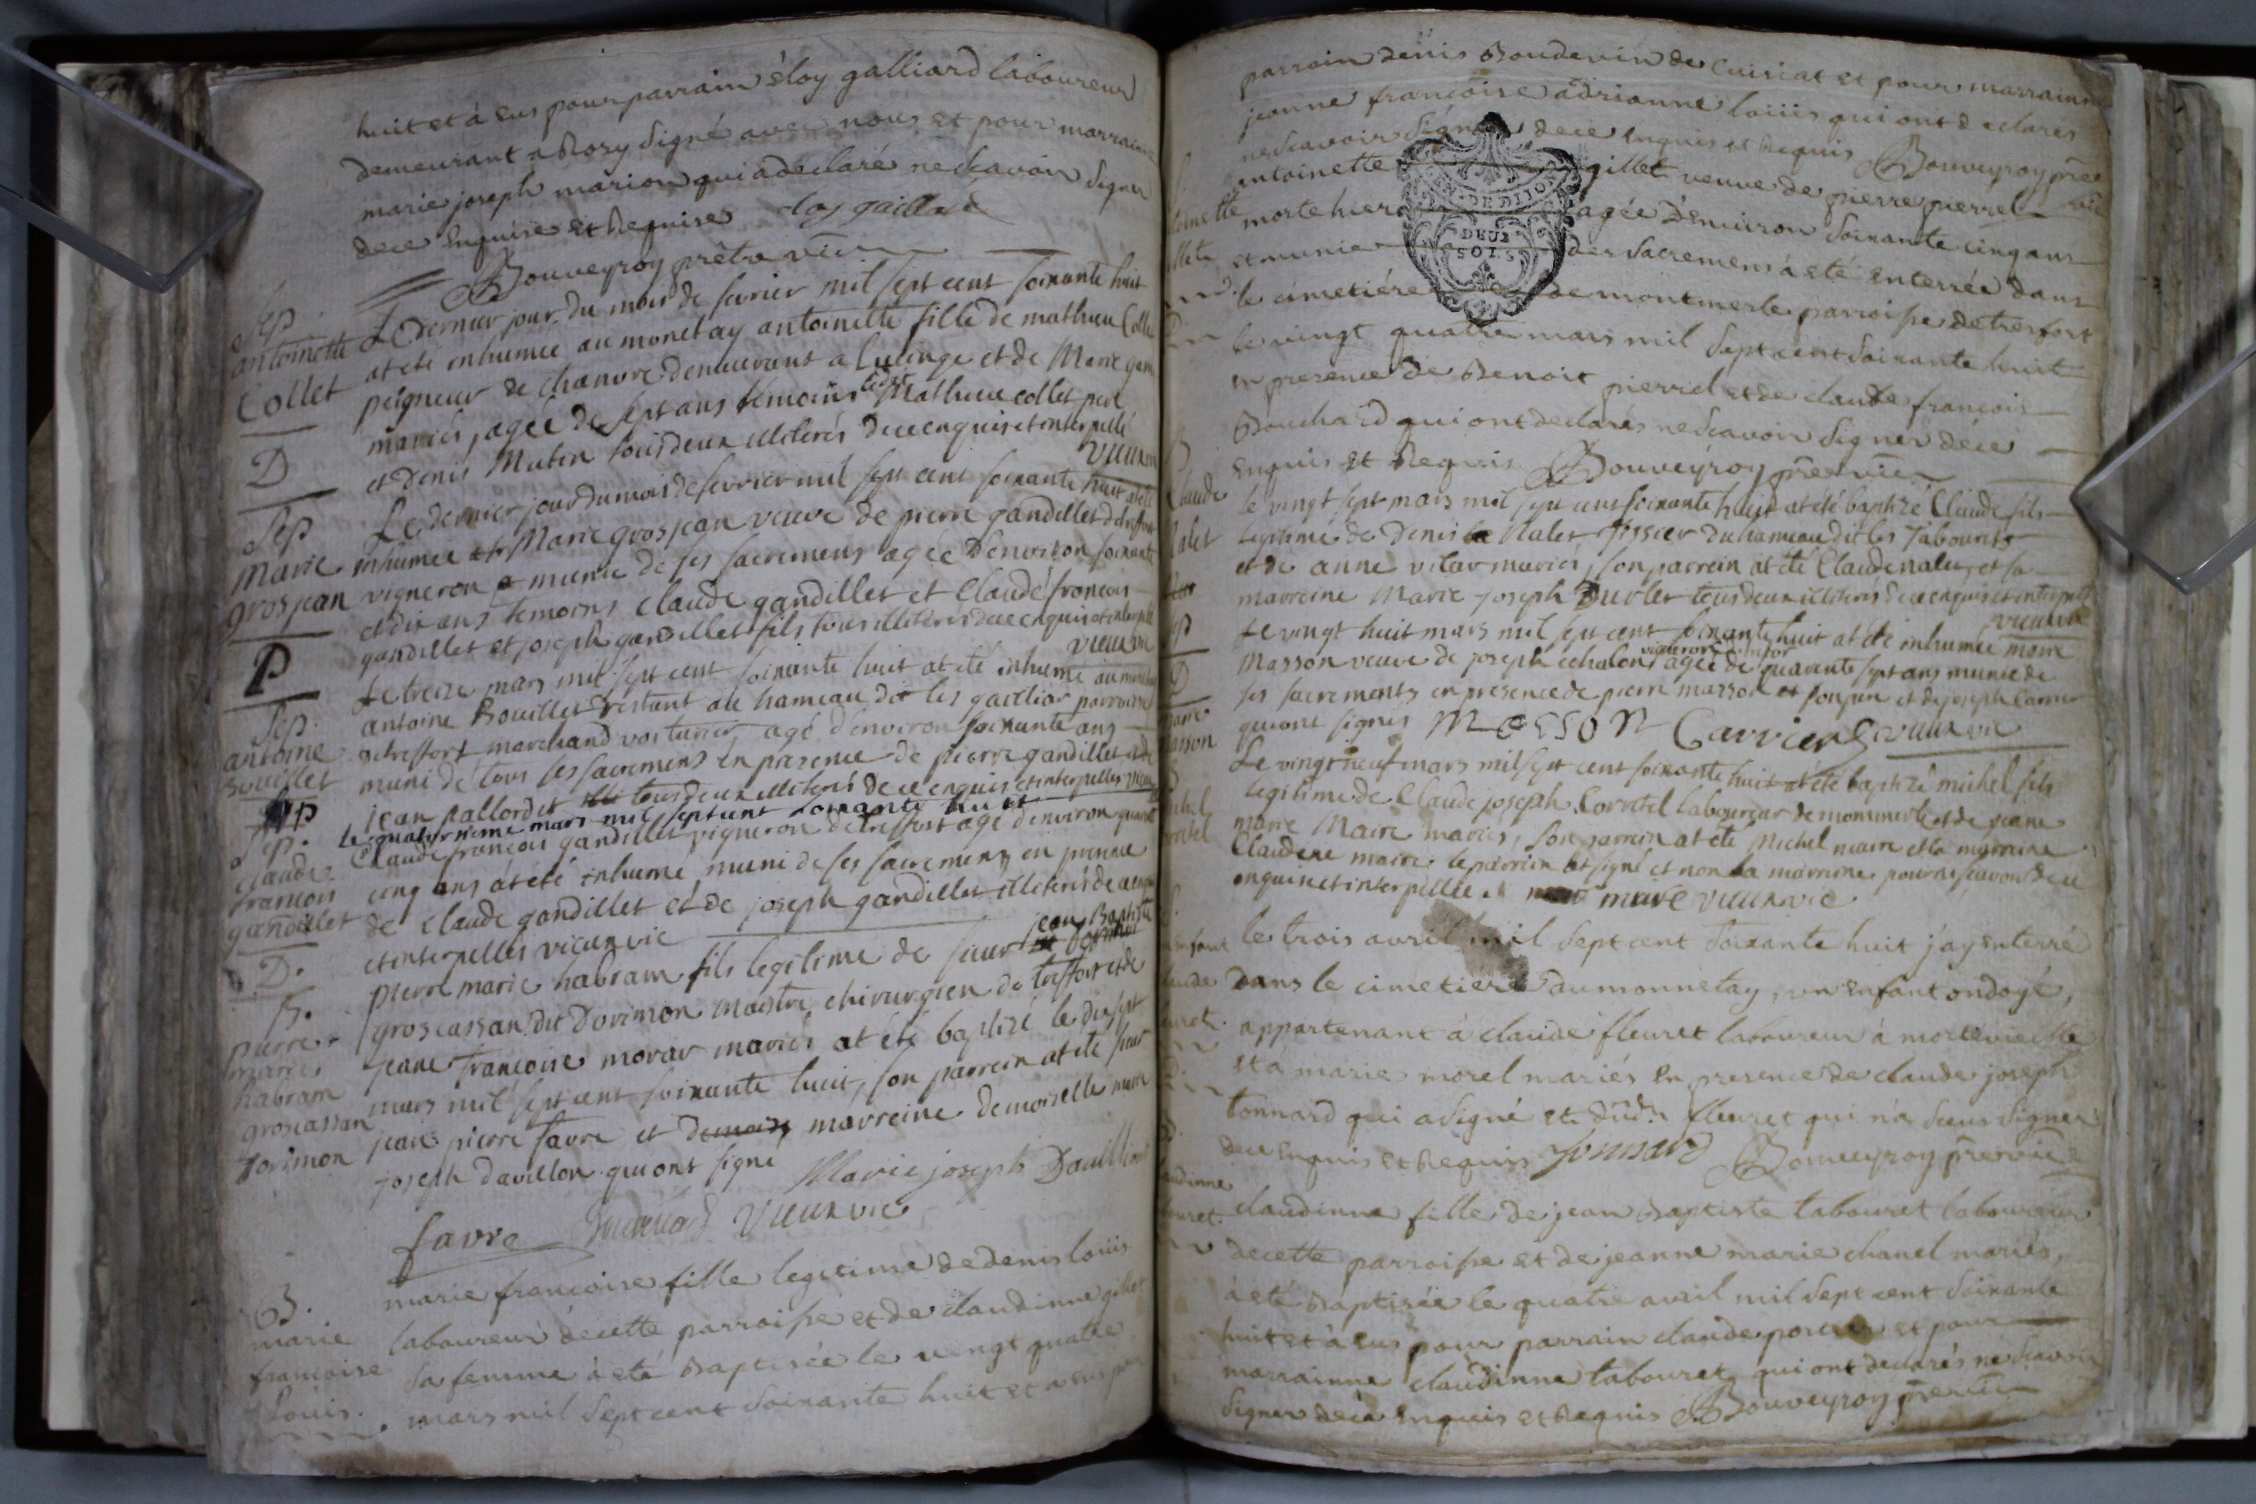 huit et à eus pour parrain éloy galliard laboureur
demeurant a Rosy signé avec nous et pour marraine
marie joseph marion qui à declaré ne scavoir signer
dece Enquise et Requise eloy gaillard
Bouveyroy prêtre vic
Sep
antoinette
Collet
D
Le Dernier jour du mois de fevrier mil sept cent soixante huit
at eté inhumée au monetay antoinette fille de mathieu Collet
peigneur de chanvre demeurant a Lucinge et de Marie
mariés, agée de sept ans temoins ledit Mathieu collet pere
et Denis Mutin tous deux illiterés de ce enquis et interpellé
vieux vic
Sep
Marie
grosjean
P
Le dernier jour du mois de fevrier mil sept cent soixante huit at eté
inhumée Marie grosjean veuve de pierre gandillet de treffort
vigneron munie de ses sacremens agée D'environ soixante
et dix ans temoins Claude gandillet et Claude françois
gandillet et joseph gandillet fils tous illiterés de ce enquis et interpellé
vieux vic
Sep.
antoine
Bouillet
Le treize mars mil sept cent soixante huit at eté inhumé au
antoine Bouillet restant au hameau dit les gaillar parroisse
de treffort marchand voiturier, agé d'environ soixante ans
muni de tous ses sacremens en presence de pierre gandillet et de
jean pallordet tous deux illiterés de ce enquis et interpelles vieux
Sep.
claude
francois
gandillet
D.
Le quatorzieme mars mil sept cent soixante huit
Claude francois gandillet vigneron de treffort agé d'environ quarante
cinq ans at eté inhumé, muni de ses sacremens, en presence
de Claude gandillet et de joseph gandillet illiterés de ce enquis
et interpelles vieux vic
B.
pierre
marie
habram
groscassan
Dorimon
pierre marie habram fils legitime de sieur jean Baptiste
groscassan dit Dorimon maitre chirurgien de treffort et de
jeane francoise morar mariés at eté baptizé le dix sept
mars mil sept cent soixante huit, son parrein at eté sieur
jean pierre favre et marreine demoiselle marie
joseph davillon qui ont signé Marie joseph Davillion
favre vieux vic
B.
marie
francoise
Louis.
marie francoise fille legitime de denis loüis
laboureur de cette parroisse et de claudinne gillet
sa femme à eté Baptisée le vingt quatre
mars mil sept cent soixante huit et a eus pour
parrain denis Boudevin de Cuisiat et pour marrainne
jeanne françoise adrianne loüis qui ont declarés
ne scavoir signer dece Enquis et Requis Bouveyroy prêtre vic
antoinette gillet veuve de pierre pierrel
morte hier agée D'Environ soixante cinq ans
et munie des sacremens à eté Enterrée dans
le cimetiére de montmerle parroisse de tresfort
le vingt quatre mars mil sept cent soixante huit
en presence de Benoit pierrel et de claude françois
Bouchard qui ont declarés ne scavoir signer dece
Enquis et Requis Bouveyroy prêtre vic
DE DIJON
DEUX
SOLS
Claude
Nalet
le vingt sept mars mil sept cent soixante huit at eté baptizé Claude fils
legitime de Denis Nalet tissier du hameau dit les Tabourets
et de anne vilar mariés, son parrein at eté Claude nalet, et sa
marreine Marie joseph buvlet tous deux illiterés de ce enquis et interpellés
vieux vic
D
marie
masson
Le vingt huit mars mil sept cent soixante huit at eté inhumée marie
Masson veuve de joseph echalon vigneron agée de quarante sept ans munie de
ses sacrements en presence de pierre masson et de joseph Carrier
qui ont signés MASSON Carrier vieux vic
Le vingt neuf mars mil sept cent soixante huit at eté baptizé michel fils
legitime de Claude joseph Corretel laboureur de montmerle et de jeane
marie Maire mariés, son parrein at eté Michel maire et la marreine
Claudene maire. le parrein at signé et non la marreine pour ne scavoir de ce
enquise et interpellée. maire vieux vic
le trois avril mil sept cent soixante huit j'ay Enterré
Dans le cimetiere du monnetay, un enfant ondoyé,
appartenant à claude fleuret laboureur à morteville
et à marie morel mariés En presence de claude joseph
tonnard qui a signé et dud. fleuret qui n'a sceus signer
dece Enquis et Requis tonnard Bouveyroy prêtre vic
claudinne fille de jean Baptiste tabouret laboureur
de cette parroisse et de jeanne marie chanel mariés,
à eté Baptisée le quatre avril mil sept cent soixante
huit et à eus pour parrain claude et pour
marrainne claudinne tabouret qui ont declarés ne scavoir
signer dece Enquis et Requis Bouveyroy prêtre vic